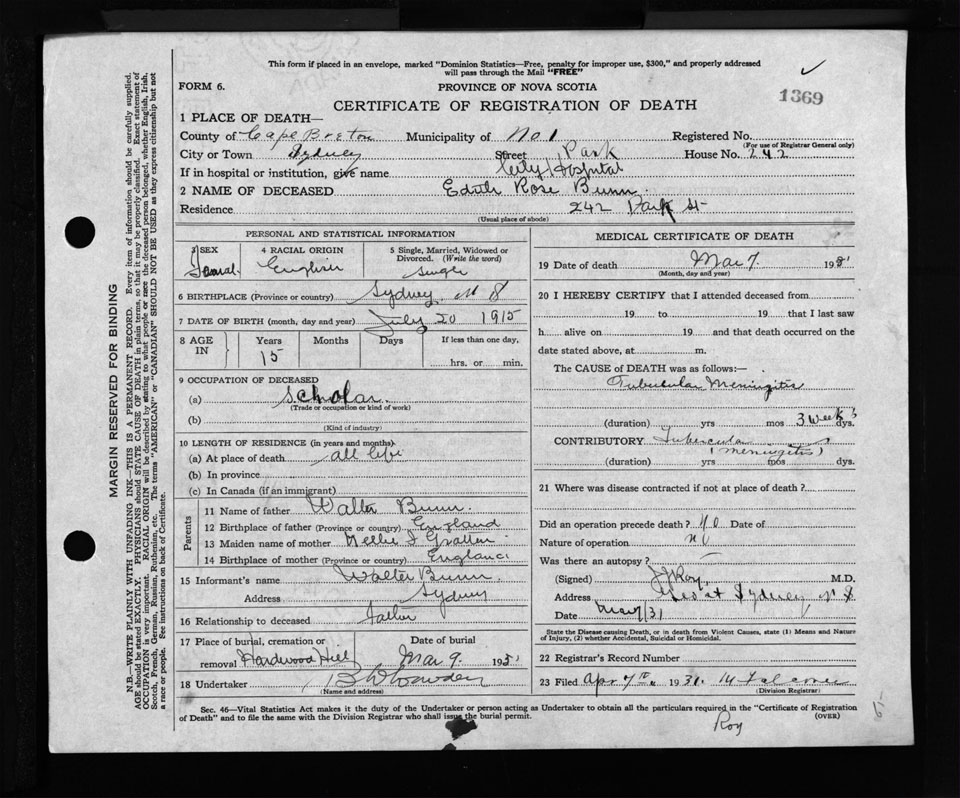 This form if placed in an envelope, marked "Dominion Statistics—Free, penalty for improper use, $300," and properly addressed
will pass through the Mail "FREE"
FORM 6.
PROVINCE OF NOVA SCOTIA
1369
CERTIFICATE OF REGISTRATION OF DEATH
1 PLACE OF DEATH—
County of Cape Breton Municipality of No 1 Registered No.
(For use of Registrar General only)
City or Town Sydney Street Park House No. 242
If in hospital or institution, give name City Hospital
2 NAME OF DECEASED Edith Rose Bunn
Residence 242 Park St
(Usual place of abode)
PERSONAL AND STATISTICAL INFORMATION
3 SEX
4 RACIAL ORIGIN
5 Single, Married, Widowed or
Divorced. (Write the word)
English
6 BIRTHPLACE (Province or country) Sydney
7 DATE OF BIRTH (month, day and year) July 20 1915
8 AGE
IN
Years
Months
Days
If less than one day,
15
hrs. or min.
9 OCCUPATION OF DECEASED
(a) Scholar
(Trade or occupation or kind of work)
(b)
(Kind of industry)
10 LENGTH OF RESIDENCE (in years and months)
(a) At place of death all life
(b) In province
(c) In Canada (if an immigrant)
Parents
11 Name of father Walter Bunn
12 Birthplace of father (Province or country) England
13 Maiden name of mother Nellie
14 Birthplace of mother (Province or country) England
15 Informant's name Walter Bunn
Address Sydney
16 Relationship to deceased Father
17 Place of burial, cremation or
removal Hardwood Hill
Date of burial
Mar 9. 193
18 Undertaker
(Name and address)
MEDICAL CERTIFICATE OF DEATH
19 Date of death Mar 7. 193
(Month, day and year)
20 I HEREBY CERTIFY that I attended deceased from
19 to 19 that I last saw
h alive on 19 and that death occurred on the
date stated above, at m.
The CAUSE of DEATH was as follows:—
Tubucular Meningitis
(duration) yrs mos 3 weeks dys.
CONTRIBUTORY Tubercula
(Meningitis)
(duration) yrs mos dys.
21 Where was disease contracted if not at place of death?
Did an operation precede death? No Date of
Nature of operation
Was there an autopsy?
(Signed) Roy M.D.
Address Sydney, N S
Date
State the Disease causing Death, or in death from Violent Causes, state (1) Means and Nature
of Injury, (2) whether Accidental, Suicidal or Homicidal.
22 Registrar's Record Number
23 Filed Apr 7th 1931.
(Division Registrar)
Sec. 46—Vital Statistics Act makes it the duty of the Undertaker or person acting as Undertaker to obtain all the particulars required in the "Certificate of Registration
of Death" and to file the same with the Division Registrar who shall issue the burial permit.
(OVER)
Roy
MARGIN RESERVED FOR BINDING
N.B.—WRITE PLAINLY WITH UNFADING INK—THIS IS A PERMANENT RECORD. Every item of information should be carefully supplied.
AGE should be stated EXACTLY. PHYSICIANS should STATE CAUSE OF DEATH in plain terms, so that it may be properly classified. Exact statement of
OCCUPATION is very important. RACIAL ORIGIN will be described by stating to what people or race the deceased person belonged, whether English, Irish,
Scotch, French, German, Russian, Ruthenian, etc. The terms "AMERICAN" or "CANADIAN" SHOULD NOT BE USED as they express citizenship but not
a race or people. See instructions on back of Certificate.